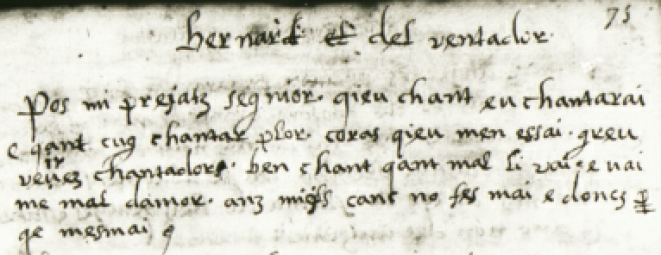 75
bernard et del ventador.
Pos mi prejatz segnior. qieu chant eu chantarai
e qant cug chantar plor. coras qieu men essai. greu
veirez chantador. ben chant qant mal li vai. e vai
me mal damor. anz migls cant no fes mai e doncs
qe mesmai